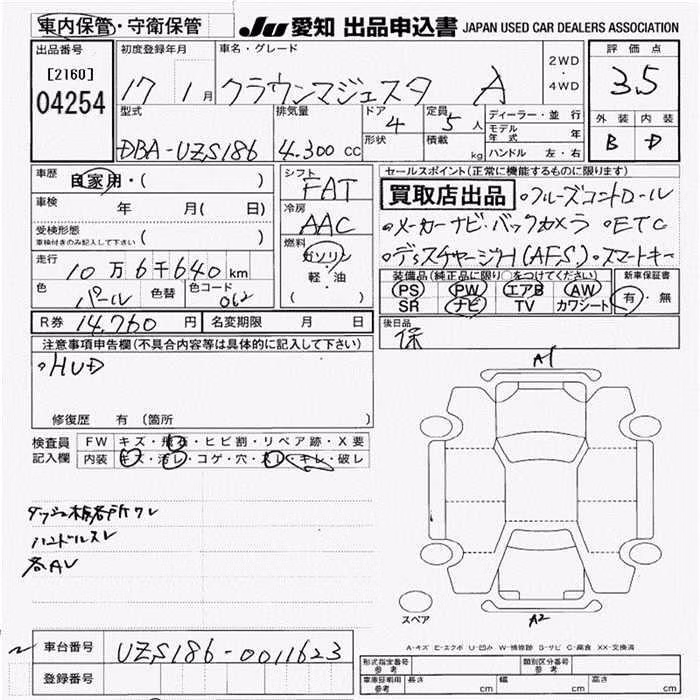 車内保管・守衛保管 JU 愛知 出品申込書 JAPAN USED CAR DEALERS ASSOCIATION
出品番号 初度登録年月 車名・グレード 2WD・4WD 評価点
[2160] 17 1月 クラウンマジェスタ A 3.5
04254
型式 排気量 ドア 定員 ディーラー・並行 外装 内装
DBA-UZS186 4.300 cc 4 5人 モデル年式 年 B D
形状 積載 kg ハンドル 左・右
車歴 自家用・( ) シフト FAT セールスポイント(正常に機能するものに限ります)
買取店出品 ○クルーズコントロール
車検 年 月( 日) 冷房 AAC ○メーカーナビ・バックカメラ ○ETC
受検形態 ( ) 燃料 ○ディスチャージH(AFS) ○スマートキー
車検付きのみ記入して下さい ガソリン
走行 10万6千640km 軽・油 装備品(純正品に限り○をつけてください) 新車保証書
( ) PS PW エアB AW 有・無
色 パール 色替 色コード 062 SR ナビ TV カワシート
R券 14,760円 名変期限 月 日 後日品
保
注意事項申告欄(不具合内容等は具体的に記入して下さい)
○HUD
A1
修復歴 有 (箇所 )
検査員 FW キズ・飛石・ヒビ割・リペア跡・X要
記入欄 内装 キズ・汚レ・コゲ・穴・スレ・キレ・破レ
ハンドルスレ
スペア A2
車台番号 UZS186-0011623
登録番号
A-キズ E-エクボ U-凹み W-補修跡 S-サビ C-腐食 XX-交換済
形式指定番号 参考 類別区分番号 参考
車庫証明用 参考 長さ cm 幅 cm 高さ cm